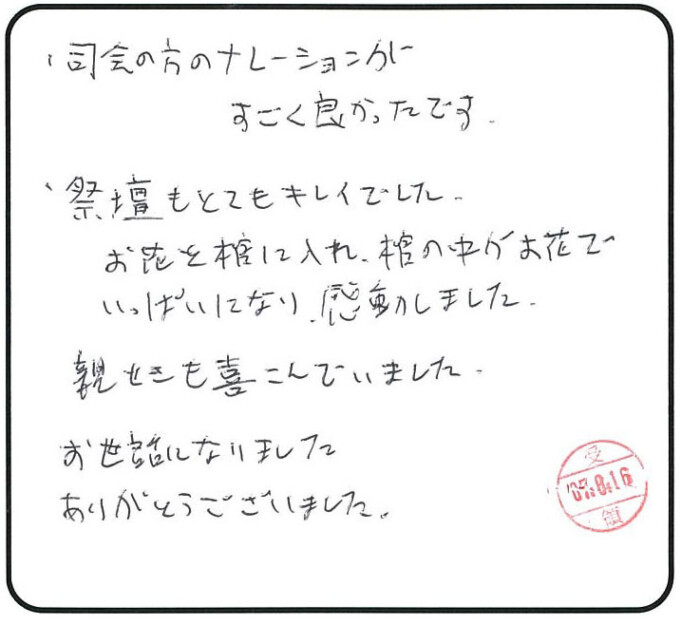 ・司会の方のナレーションが
すごく良かったです.
・祭壇もとてもキレイでした.
お花を棺に入れ、棺の中がお花で
いっぱいになり、感動しました.
親せきも喜こんでいました.
お世話になりました
ありがとうございました.
受
'07.8.16
領